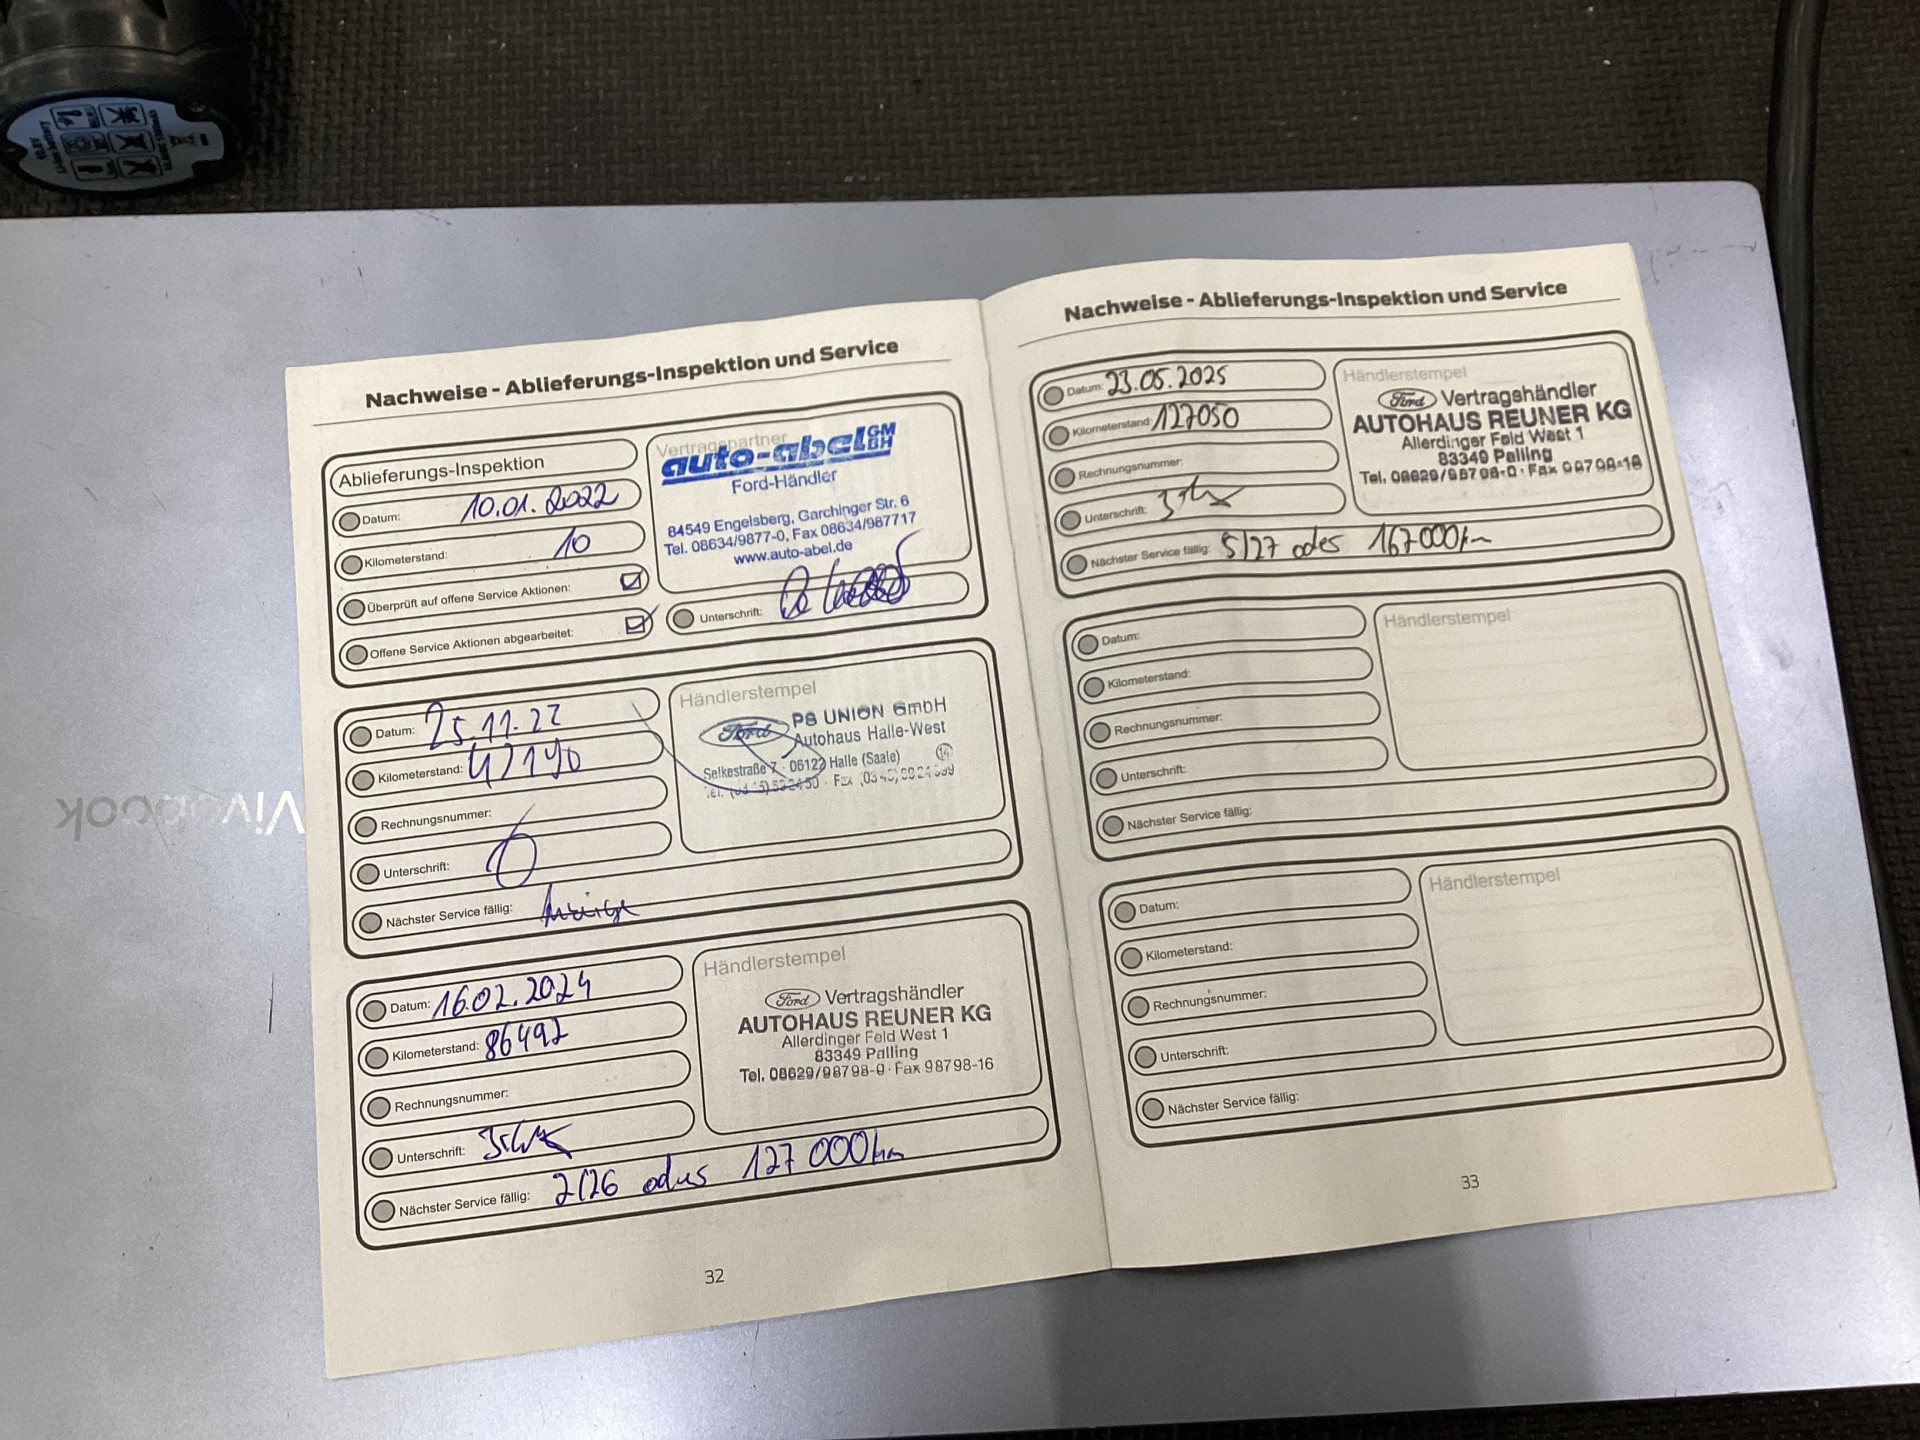 Nachweise - Ablieferungs-Inspektion und Service
Ablieferungs-Inspektion
Datum: 10.01.2022
Kilometerstand: 10
Überprüft auf offene Service Aktionen:
Offene Service Aktionen abgearbeitet:
Vertragspartner
auto-abel GMBH
Ford-Händler
84549 Engelsberg, Garchinger Str. 6
Tel. 08634/9877-0, Fax 08634/987717
www.auto-abel.de
Unterschrift:
Datum: 25.11.22
Kilometerstand: 42190
Rechnungsnummer:
Unterschrift:
Nächster Service fällig: Anzeige
Händlerstempel
Ford PS UNION GmbH
Autohaus Halle-West
Selkestraße 7 · 06122 Halle (Saale) 14
Datum: 16.02.2024
Kilometerstand: 86492
Rechnungsnummer:
Unterschrift:
Nächster Service fällig: 2/26 oder 127 000km
Händlerstempel
Ford Vertragshändler
AUTOHAUS REUNER KG
Allerdinger Feld West 1
83349 Palling
Tel. 08629/98798-0 · Fax 98798-16
32
Nachweise - Ablieferungs-Inspektion und Service
Datum: 23.05.2025
Kilometerstand: 127050
Rechnungsnummer:
Unterschrift:
Nächster Service fällig: 5/27 oder 167000km
Händlerstempel
Ford Vertragshändler
AUTOHAUS REUNER KG
Allerdinger Feld West 1
83349 Palling
Tel. 08629/98798-0 · Fax 98798-16
Datum:
Kilometerstand:
Rechnungsnummer:
Unterschrift:
Nächster Service fällig:
Händlerstempel
Datum:
Kilometerstand:
Rechnungsnummer:
Unterschrift:
Nächster Service fällig:
Händlerstempel
33
Vivobook